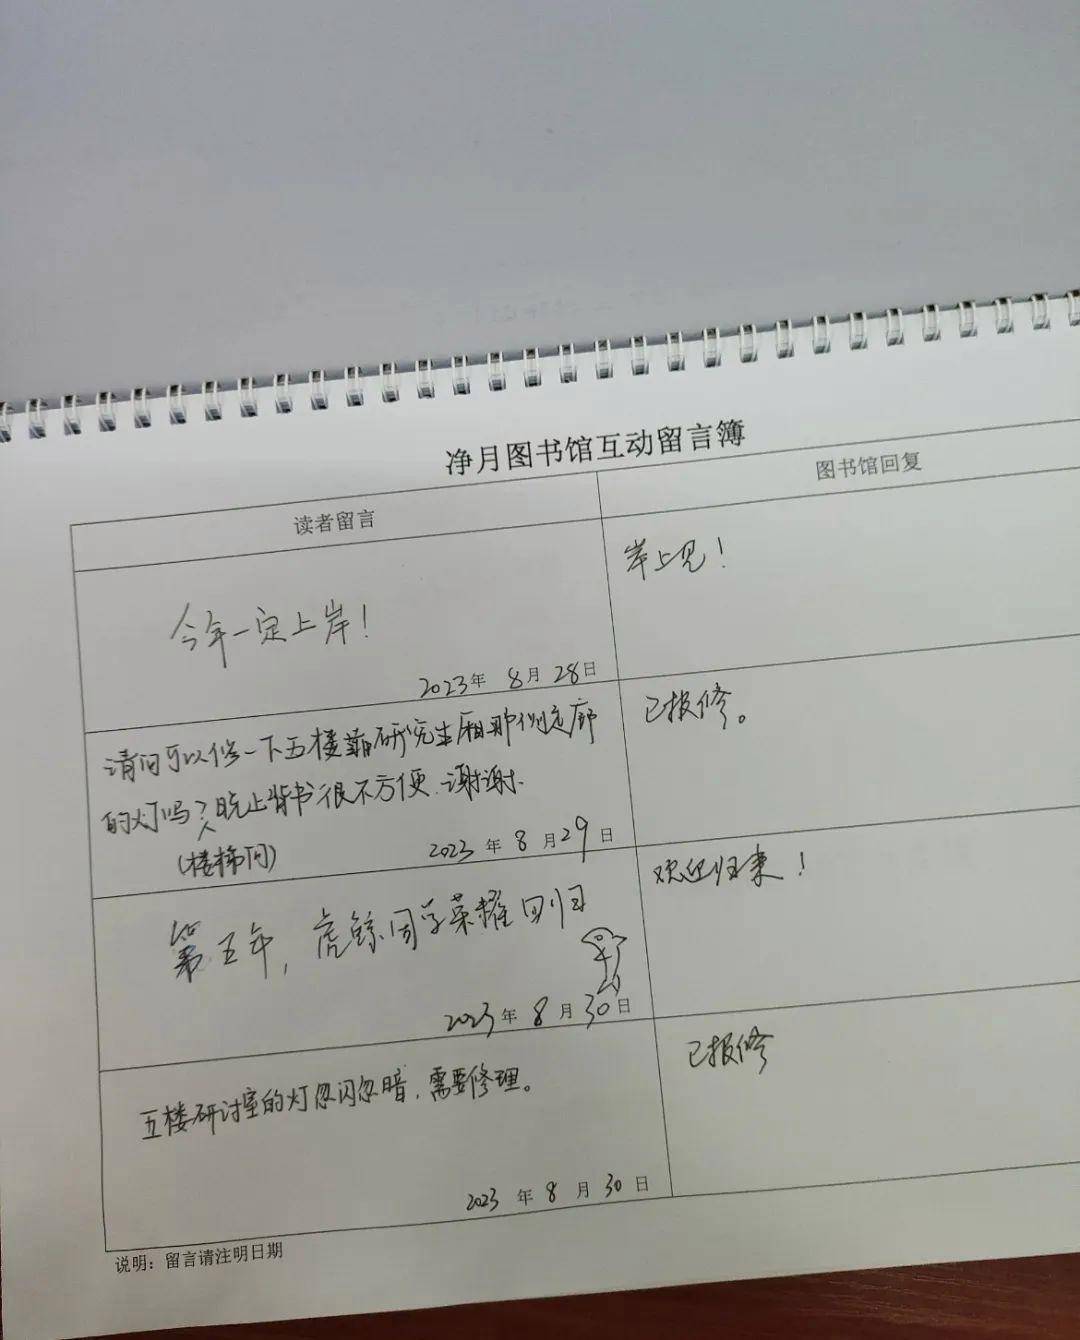 净月图书馆互动留言簿
读者留言
图书馆回复
今年一定上岸!
2023年 8月 28日
岸上见!
请问可以修一下五楼靠研究生厢那侧走廊
的灯吗?晚上背书很不方便.谢谢.
(楼梯间)
2023 年 8 月29日
已报修。
第五年,虎鲸同学荣耀回归
2023年 8 月 30日
欢迎归来!
五楼研讨室的灯忽闪忽暗,需要修理。
2023 年 8 月 30 日
已报修
说明:留言请注明日期